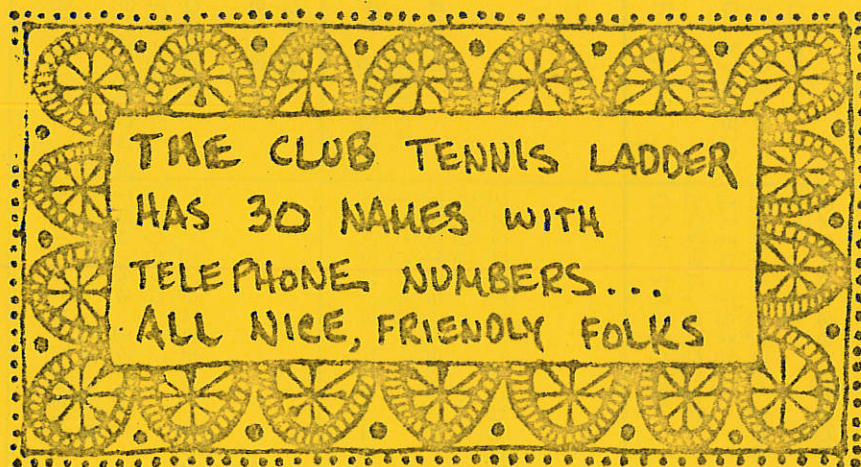 THE CLUB TENNIS LADDER
HAS 30 NAMES WITH
TELEPHONE NUMBERS...
ALL NICE, FRIENDLY FOLKS